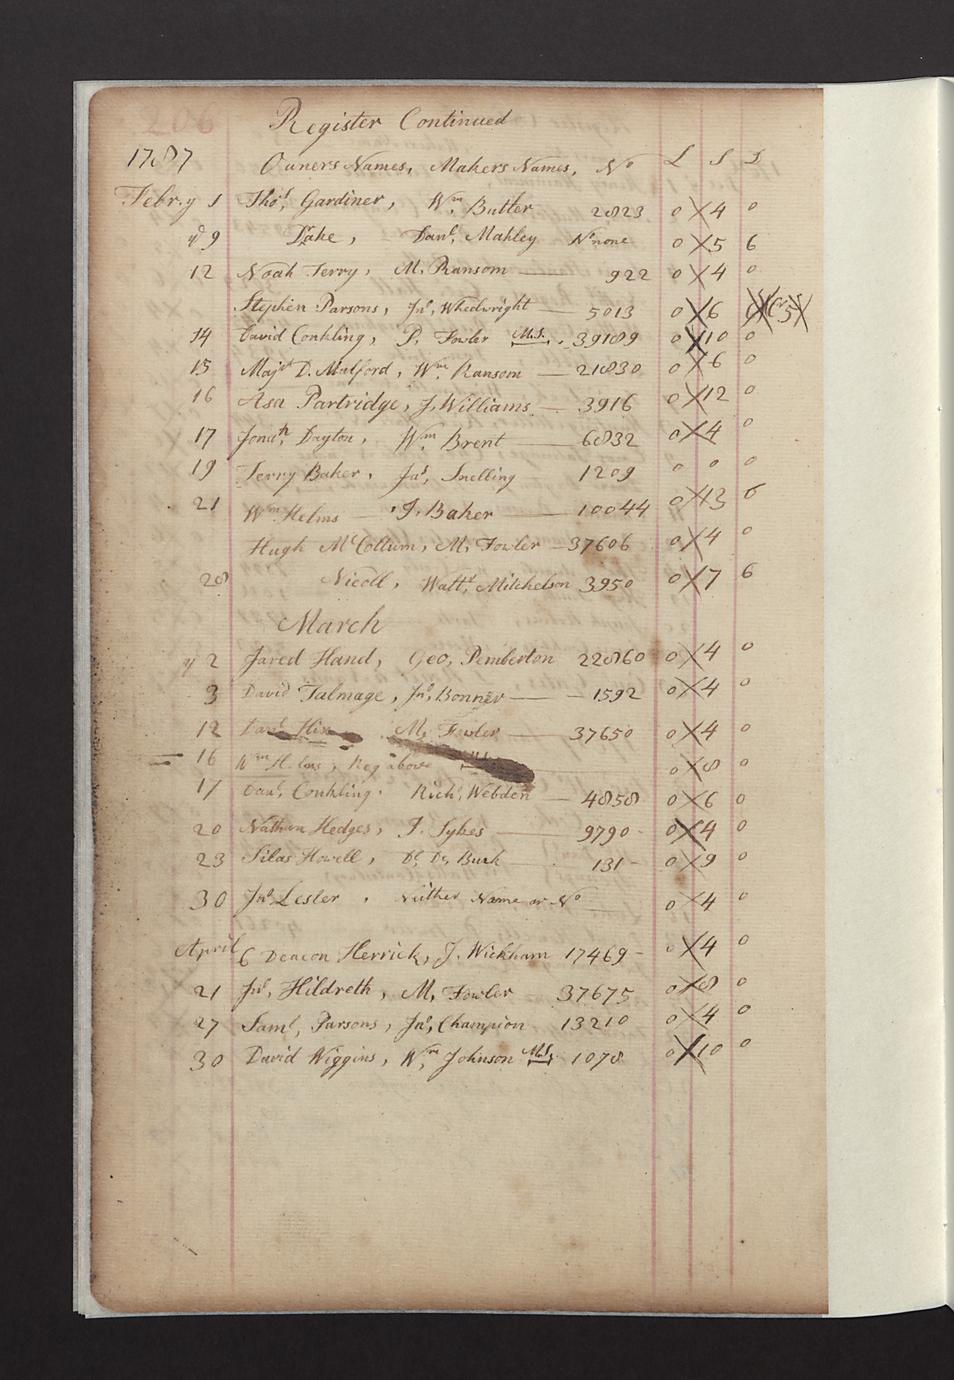 206
Register Continued
1787 Owners Names, Makers Names, No L S D
Febr.y 1 Thos, Gardiner, Wm. Butler 2823 0 4 0
yd 9 Lake, Danl, Mahley No none 0 5 6
12 Noah Terry, M. Ransom 922 0 4 0
Stephen Parsons, Jno, Whedwright 5013 0 6
14 David Conkling, P. Fowler M.S. 39189 0 10 0
15 Majr D. Mulford, Wm. Ransom 21830 0 6 0
16 Asa Partridge, J, Williams 3916 0 12 0
17 Jonath, Dayton, Wm Brent 6832 0 4 0
19 Terry Baker, Jas, Snelling 1209 0 0 0
21 Wm Helms J. Baker 10044 0 13 6
Hugh McCollum, M, Fowler 37606 0 4 0
28 Nicoll, Watts, Mitchelson 3950 0 7 6
March
yd 2 Jared Hand, Geo, Pemberton 22860 0 4 0
3 David Talmage, Jno, Bonner 1592 0 4 0
12 Danl M, Fowler 37650 0 4 0
16 Wm Helms, Reg above 0 8 0
17 Danl, Conkling. Richd, Webden 4858 0 6 0
20 Nathan Hedges, J. Sykes 9790 0 4 0
23 Silas Howell, Dl, De, Buck 131 0 9 0
30 Jno Lester, Neither Name or No 0 4 0
April 6 Deacon Herrick, J. Wickham 17469 0 4 0
21 Jno, Hildreth, M, Fowler 37675 0 8 0
27 Saml, Parsons, Jno, Champion 13210 0 4 0
30 David Wiggins, Wm, Johnson M.S. 1078 0 10 0